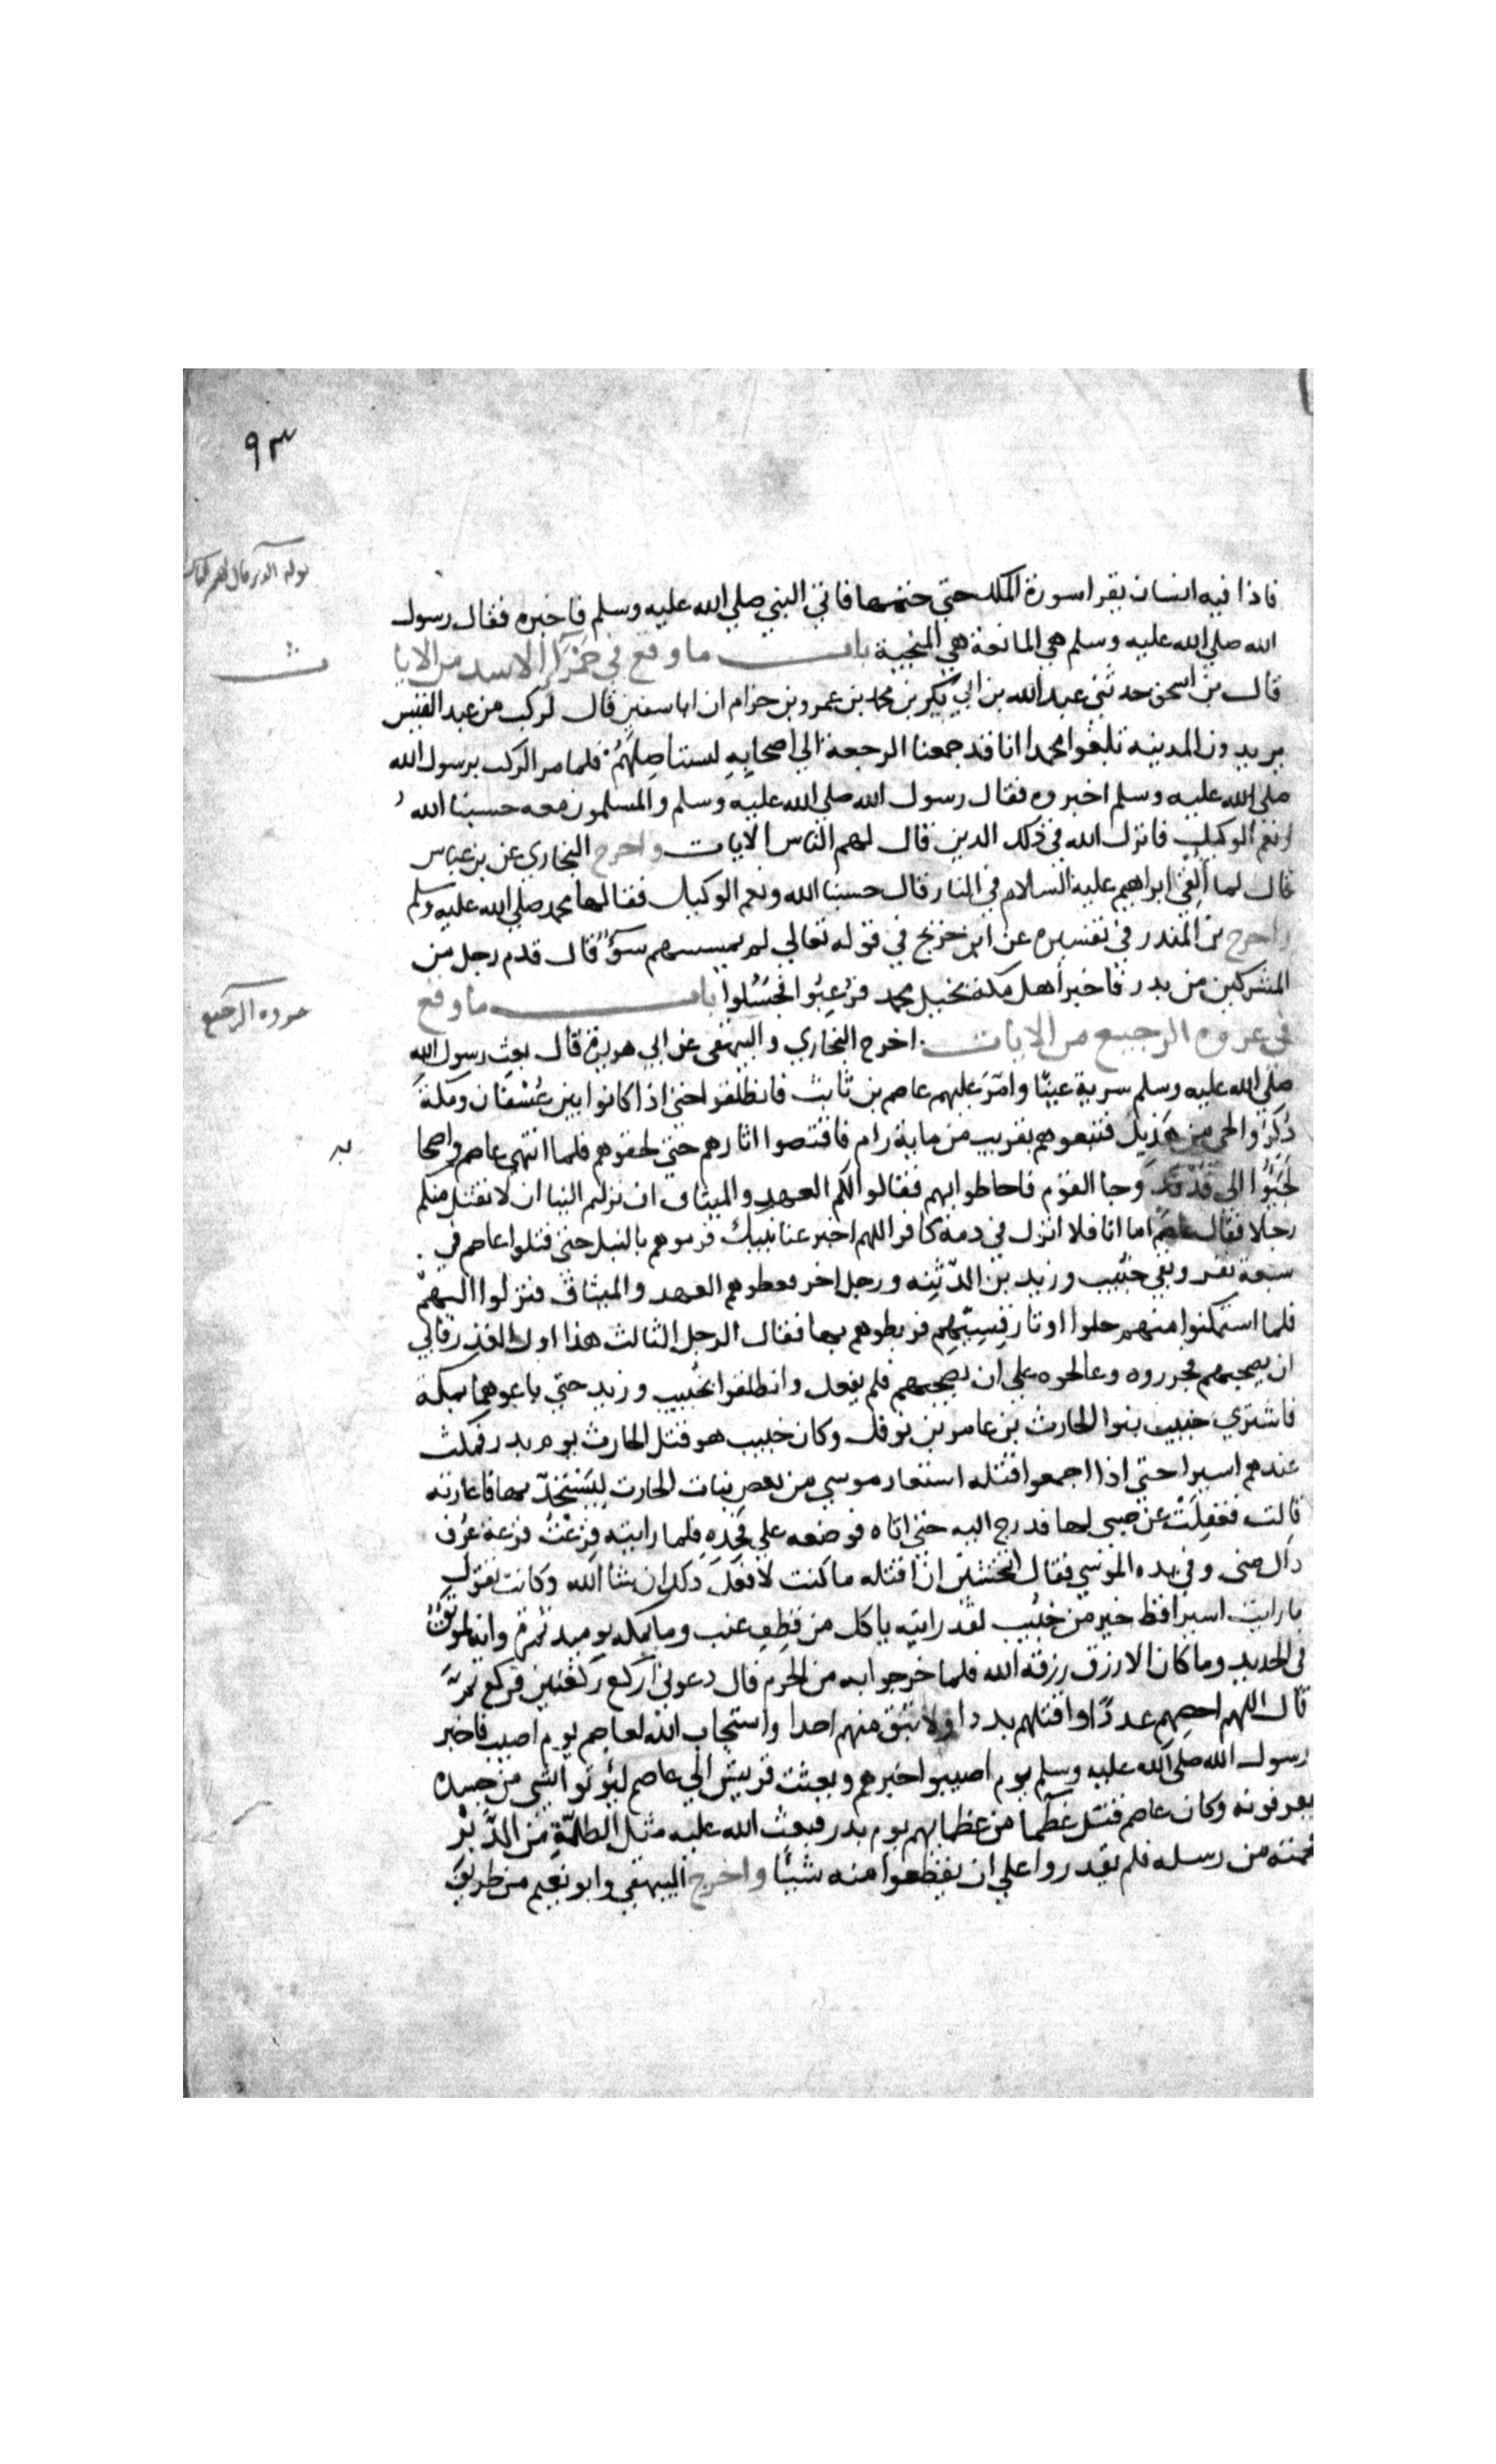 ٩٣
فاذا فيه انسان يقرا سورة الملك حتي ختمها فاتي النبي صلي الله عليه وسلم فاخبره فقال رسول
الله صلي الله عليه وسلم هي المانعة هي المنجية باب ما وقع في حمرآ الاسد من الايا
ت
قال بن اسحق حدثني عبد الله بن ابي بكر بن محمد بن عمرو بن حزام ان ابا سفين قال لركب من عبد القيس
يريدون المدينة تلغوا محمدا انا قد جمعنا الرجعة الي اصحابه لنستاصلهم فلما مر الركب برسول الله
صلي الله عليه وسلم اخبروه فقال رسول الله صلي الله عليه وسلم والمسلمون معه حسبنا الله
ونعم الوكيل فانزل الله في ذلك الذين قال لهم الناس الايات واخرج البخاري عن بن عباس
قال لما القي ابراهيم عليه السلام في النار قال حسبنا الله ونعم الوكيل فقالها محمد صلي الله عليه وسلم
واخرج بن المنذر في تفسيره عن ابن جريج في قوله تعالي لم يمسسهم سوء قال قدم رجل من
المشركين من بدر فاخبر اهل مكة بخيل محمد فرعبوا فجسلوا باب ما وقع
غزوة الرجيع
في غزوة الرجيع من الايات اخرج البخاري والبيهقي عن ابي هريرة قال بعث رسول الله
صلي الله عليه وسلم سرية عينا وامر عليهم عاصم بن ثابت فانطلقوا حتي اذا كانوا بين عسفان ومكة
ذكروا لحي من هذيل فتبعوهم بقريب من ماية رام فاقتصوا اثارهم حتي لحقوهم فلما انتهي عاصم واصحا
به
لجئوا الي فدفد وجا القوم فاحاطوا بهم فقالوا لكم العهد والميثاق ان نزلتم الينا ان لا نقتل منكم
رجلا فقال عاصم اما انا فلا انزل في ذمة كافر اللهم اخبر عنا نبيك فرموهم بالنبل حتي قتلوا عاصم في
سبعة نفر وبقي خبيب وزيد بن الدثنه ورجل اخر فعطوهم العهد والميثاق فنزلوا اليهم
فلما استمكنوا منهم حلوا اوتار قسيهم فربطوهم بها فقال الرجل الثالث هذا اول الغدر فابي
ان يصحبهم فجرروه وعالجوه علي ان يصحبهم فلم يفعل وانطلقوا بخبيب وزيد حتي باعوهما بمكة
فاشتري خبيب بنوا الحارث بن عامر بن نوفل وكان خبيب هو قتل الحارث يوم بدر فمكث
عندهم اسيرا حتي اذا اجمعوا قتله استعار موسي من بعض بنات الحارث ليستحد بها فاعارته
قالت فغفلت عن صبي لها فدرج اليه حتي اتاه فوضعه علي فخذه فلما رايته فزعت فزعة عرف
ذاك مني وفي يده الموسي فقال اتخشين ان اقتله ما كنت لافعل ذلك ان شا الله وكانت تقول
ما رايت اسيرا قط خير من خبيب لقد رايته ياكل من قطف عنب وما بمكة يوميد ثمرة وانه لموثق
في الحديد وما كان الا رزق رزقه الله فلما خرجوا به من الحرم قال دعوني اركع ركعتين فركع ثم
قال اللهم احصهم عددا واقتلهم بددا ولا تبق منهم احدا واستجاب الله لعاصم يوم اصيب فاخبر
رسول الله صلي الله عليه وسلم يوم اصيبوا خبرهم وبعثت قريش الي عاصم ليوتوا بشي من جسده
يعرفونه وكان عاصم قتل عظيما من عظمايهم يوم بدر فبعث الله عليه مثل الظلة من الدبر
فحمته من رسله فلم يقدروا علي ان يقطعوا منه شيئا واخرج البيهقي وابو نعيم من طريق